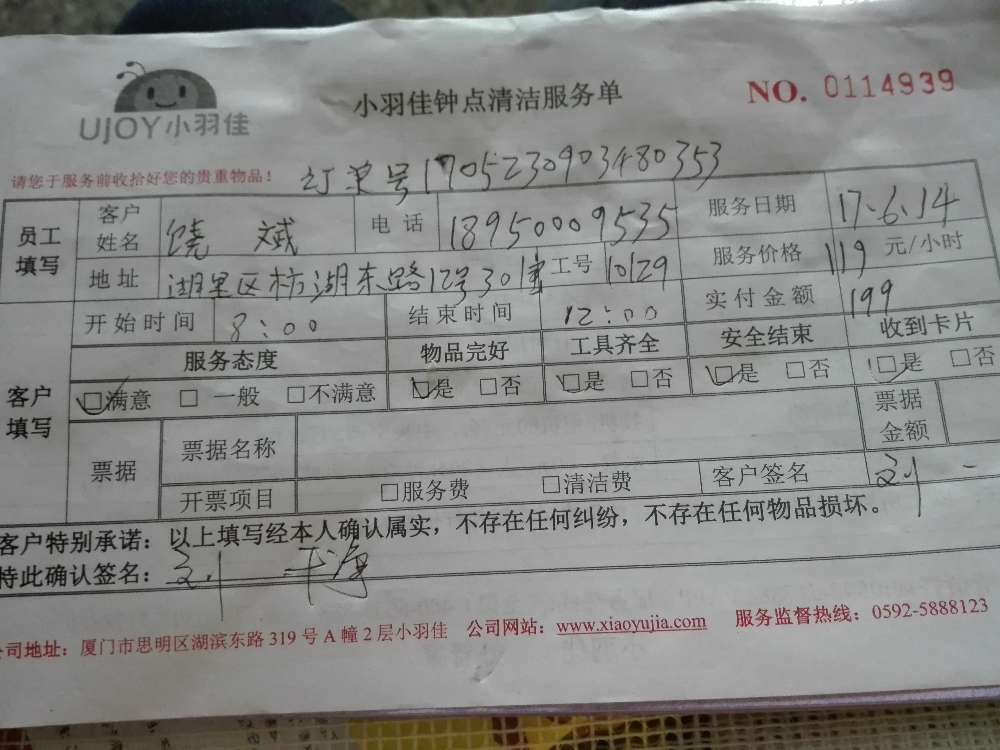 UJOY小羽佳
小羽佳钟点清洁服务单
NO. 0114939
请您于服务前收拾好您的贵重物品！
订单号1705230903480353
员工填写 客户姓名 饶斌 电话 18950009535 服务日期 17.6.14
地址 湖里区枋湖东路12号301室 工号 10129 服务价格 119 元/小时
开始时间 8:00 结束时间 12:00 实付金额 199
客户填写 服务态度 物品完好 工具齐全 安全结束 收到卡片
☑满意 □一般 □不满意 ☑是 □否 ☑是 □否 ☑是 □否 ☑是 □否
票据 票据名称 票据金额
开票项目 □服务费 □清洁费 客户签名 刘
客户特别承诺：以上填写经本人确认属实，不存在任何纠纷，不存在任何物品损坏。
特此确认签名：刘
公司地址：厦门市思明区湖滨东路 319 号 A 幢 2 层小羽佳 公司网站：www.xiaoyujia.com 服务监督热线：0592-5888123